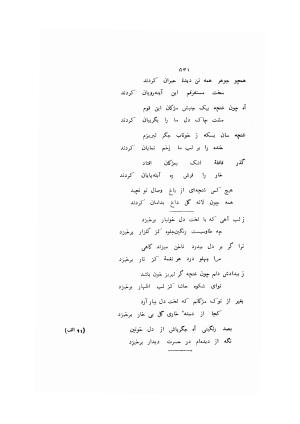 ۵۳۱
همچو جوهر همه تن دیدهٔ حیران کردند
سخت مستغرقم این آینه‌رویان کردند
آه چون غنچه بیک جنبش مژگان این قوم
مشت چاک دل ما را بگریبان کردند
غنچه سان بسکه ز خوناب جگر لبریزم
خنده را بر لب ما زخم نمایان کردند
گذر قافلهٔ اشک بمژگان افتاد
خار را فرش ره آبله‌پایان کردند
هیچ کس غنچه‌ای از باغ وصال تو نچید
همه چون لاله گل داغ بدامان کردند
ز لب آهی که با لخت دل خونبار برخیزد
چه طاوسیست رنگین‌جلوه کز گلزار برخیزد
ترا گر بر دل بیدرد ناخن میزند گاهی
مرا پهلو درد هر نغمهٔ کز تار برخیزد
ز بیدادش دلم چون غنچه گر لبریز خون باشد
نوای شکوه حاشا کز لب اظهار برخیزد
بغیر از نوک مژگانم که لخت دل ببار آرد
کجا از دستهٔ خاری گل بی خار برخیزد
بصد رنگینی آه جگرپاش از دل خونین
نگه از دیده‌ام در حسرت دیدار برخیزد
(۹۱ الف)